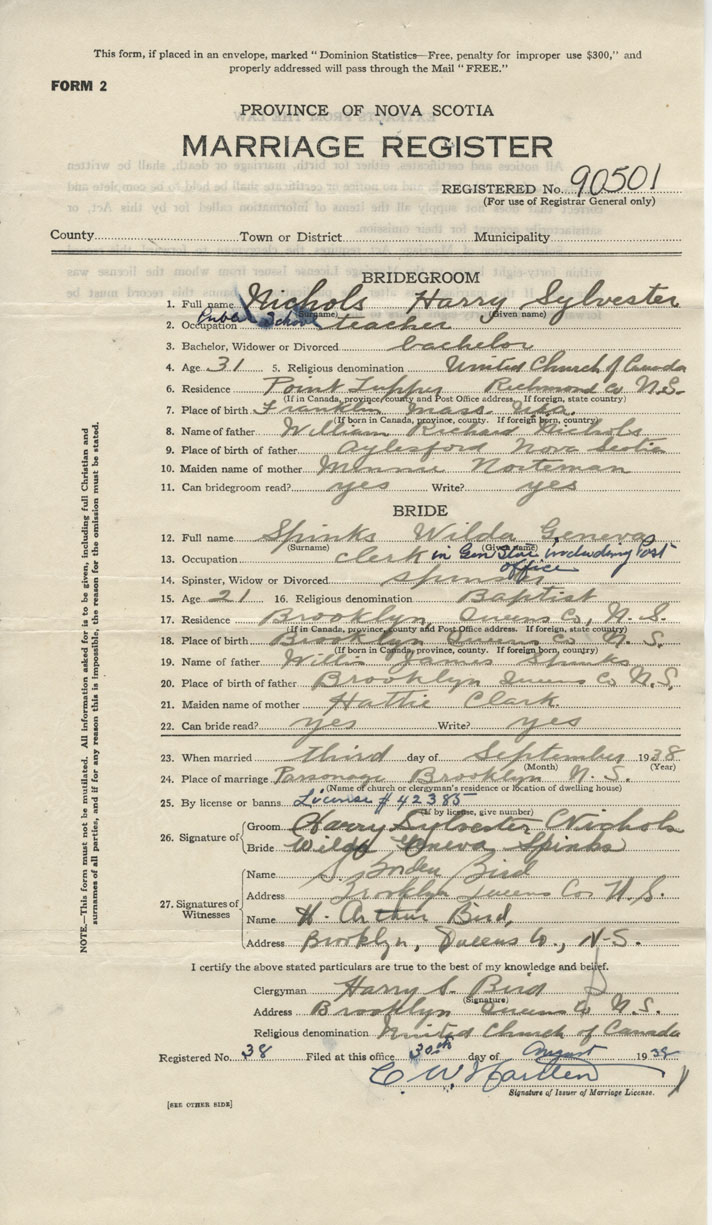 This form, if placed in an envelope, marked "Dominion Statistics—Free, penalty for improper use $300," and
properly addressed will pass through the Mail "FREE."
FORM 2
PROVINCE OF NOVA SCOTIA
MARRIAGE REGISTER
REGISTERED No. 90501
(For use of Registrar General only)
County Town or District Municipality
BRIDEGROOM
1. Full name Nichols Harry Sylvester
(Surname) (Given name)
2. Occupation Public School teacher
3. Bachelor, Widower or Divorced bachelor
4. Age 31 5. Religious denomination United Church of Canada
6. Residence Point Tupper Richmond Co N.S.
(If in Canada, province, county and Post Office address. If foreign, state country)
7. Place of birth Franklin Mass. Usa.
(If born in Canada, province, county. If foreign born, country)
8. Name of father William Richard Nichols
9. Place of birth of father Aylesford Nova Scotia
10. Maiden name of mother Minnie
11. Can bridegroom read? yes Write? yes
BRIDE
12. Full name Spinks Wilda Geneva
(Surname) (Given name)
13. Occupation clerk in Gen Store including Post
office
14. Spinster, Widow or Divorced spinster
15. Age 21 16. Religious denomination Baptist
17. Residence Brooklyn, Queens Co, N.S.
(If in Canada, province, county and Post Office address. If foreign, state country)
18. Place of birth Brooklyn Queens Co N.S.
(If born in Canada, province, county. If foreign born, country)
19. Name of father Willis James Spinks
20. Place of birth of father Brooklyn Queens Co N.S.
21. Maiden name of mother Hattie Clark
22. Can bride read? yes Write? yes
23. When married third day of September 1938
(Month) (Year)
24. Place of marriage Parsonage Brooklyn N.S.
(Name of church or clergyman's residence or location of dwelling house)
25. By license or banns License # 42385
(If by license, give number)
26. Signature of Groom Harry Sylvester Nichols
Bride Wilda Geneva Spinks
27. Signatures of Witnesses
Name Borden Bird
Address Brooklyn Queens Co. N.S.
Name H. Arthur Bird,
Address Brooklyn, Queens Co., N.S.
I certify the above stated particulars are true to the best of my knowledge and belief.
Clergyman Harry S. Bird
(Signature)
Address Brooklyn Queens Co N.S.
Religious denomination United Church of Canada
Registered No. 38 Filed at this office 30th day of August 1938
C. W.
Signature of Issuer of Marriage License.
[SEE OTHER SIDE]
NOTE.—This form must not be mutilated. All information asked for is to be given, including full Christian and
surnames of all parties, and if for any reason this is impossible, the reason for the omission must be stated.